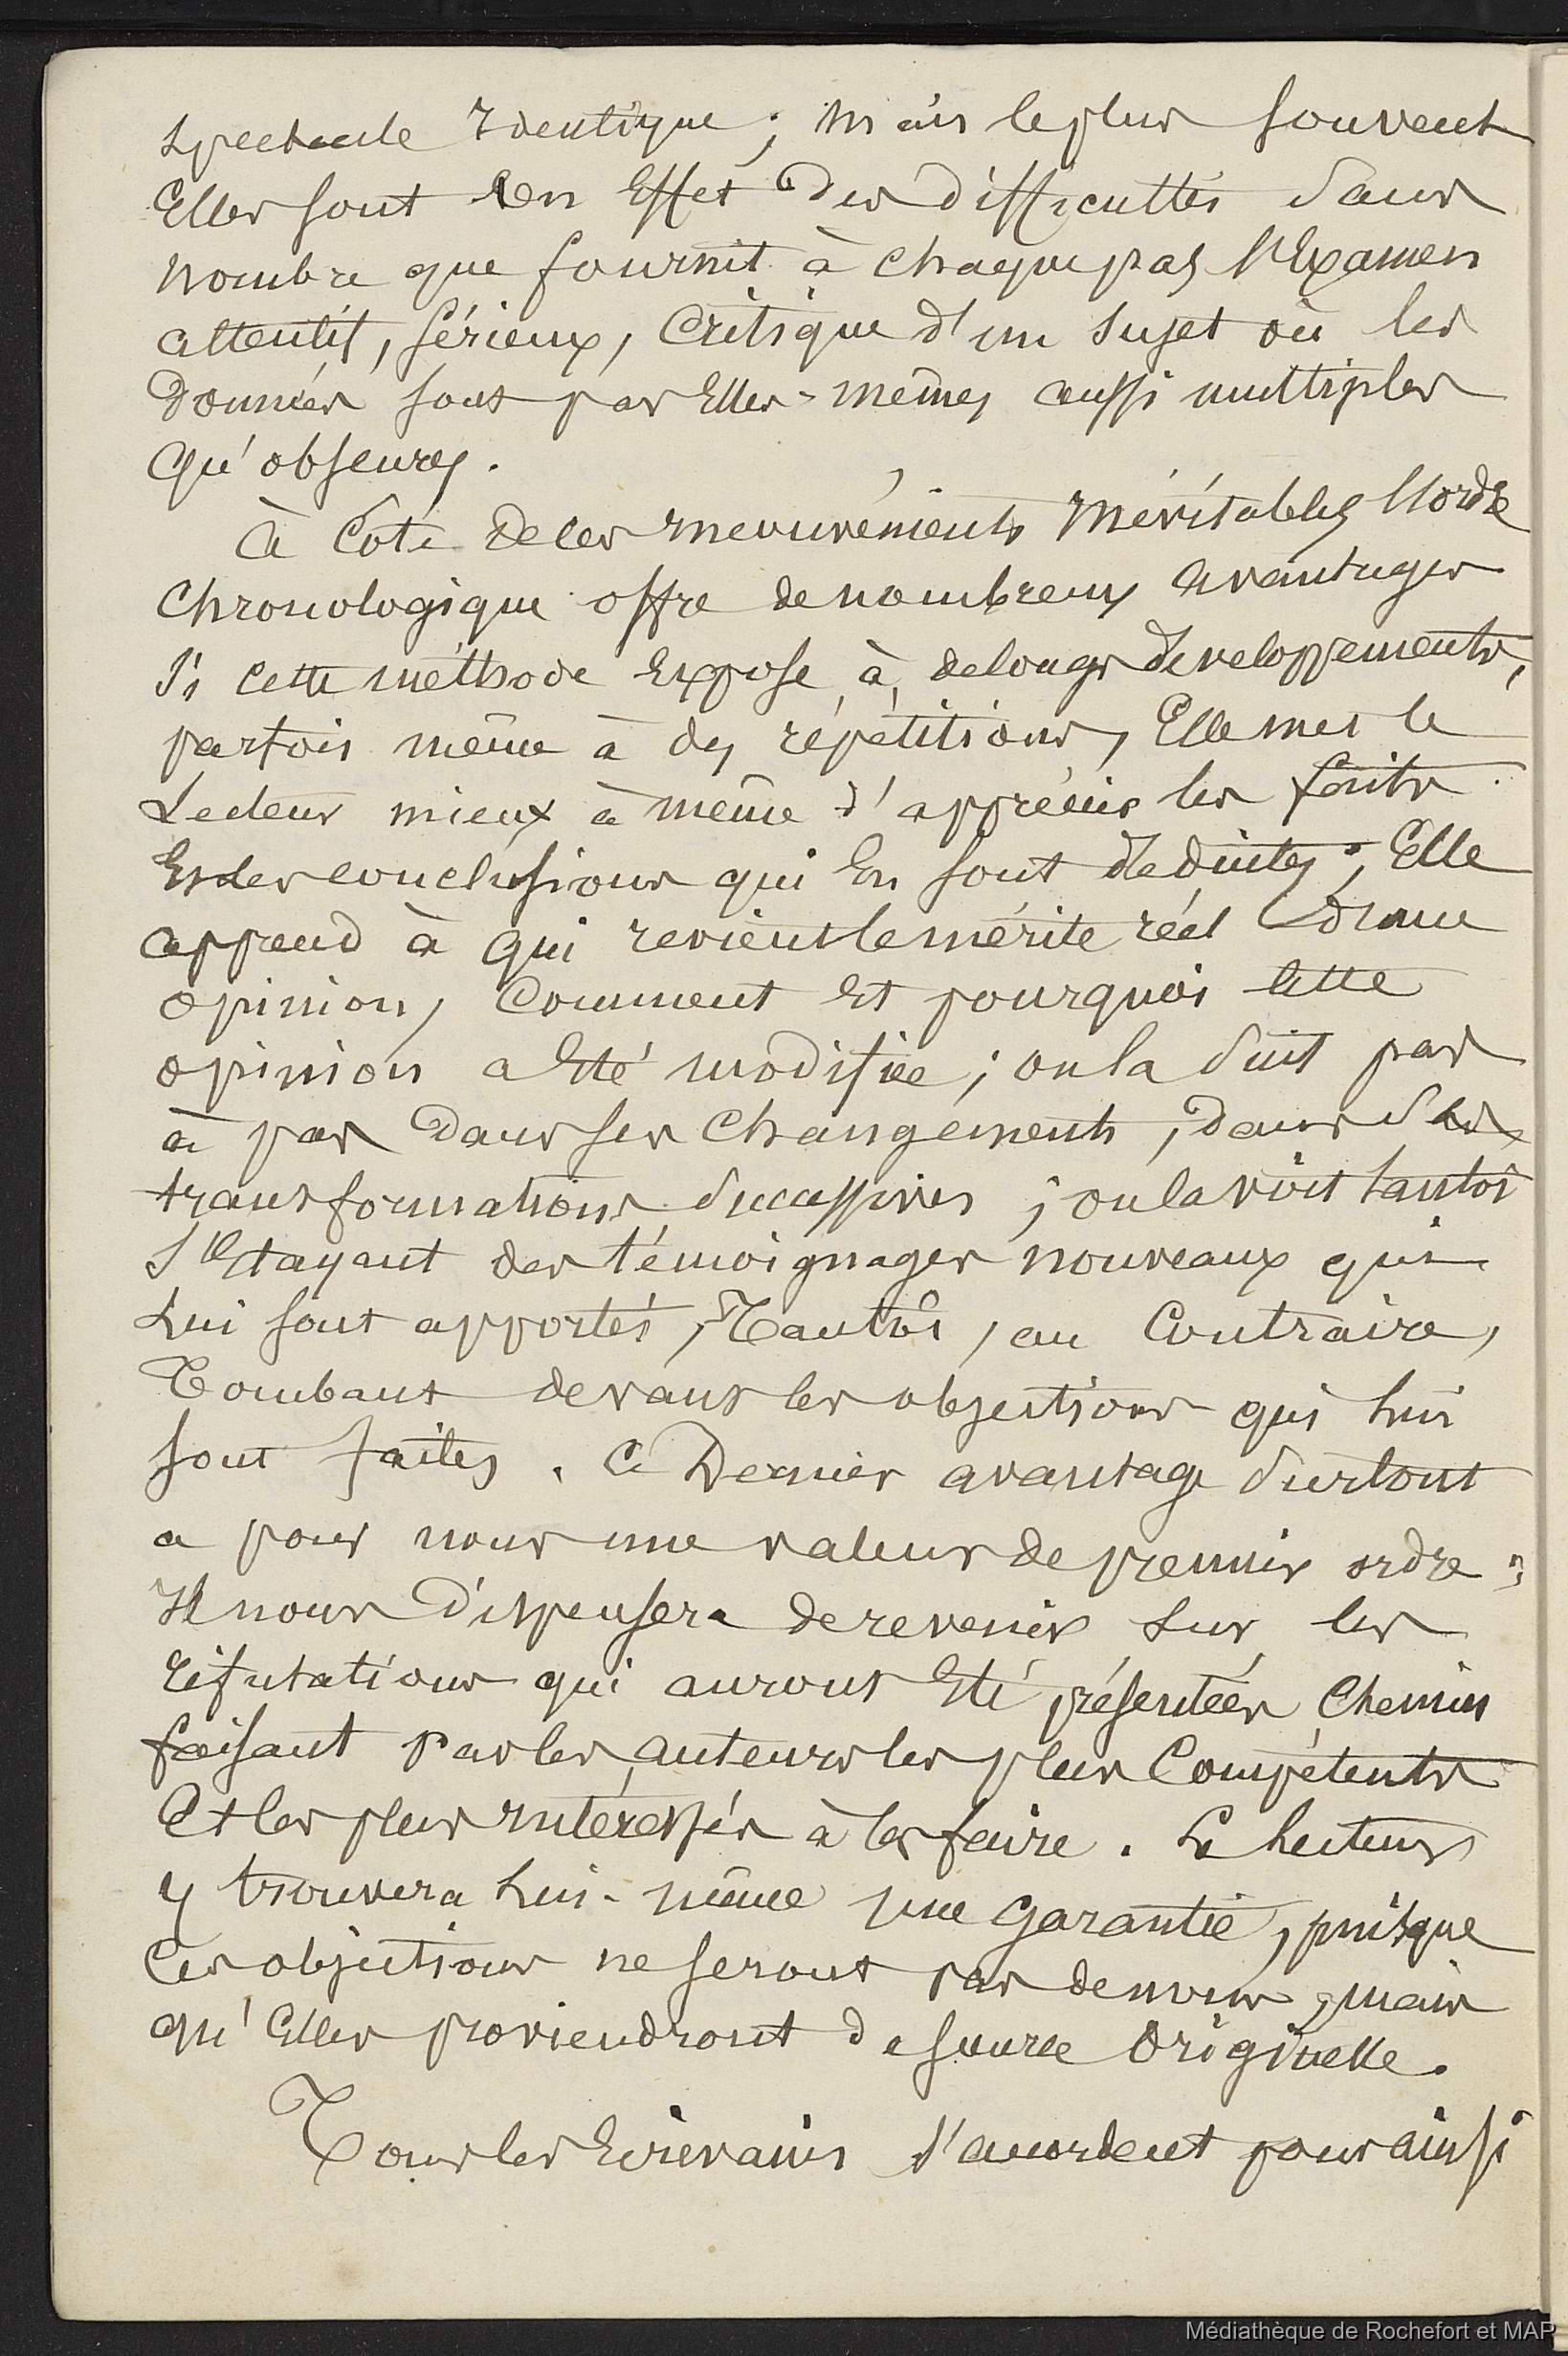 spectacle Identique ; mais le plus souvent
Elles sont En Effet des difficultés sans
nombre que fournit à chaque pas l'Examen
attentif, sérieux, Critique d'un sujet où les
Données sont par Elles-mêmes aussi multiples
qu'obscures.
À Coté de ces Méritables l'ordre
Chronologique offre de nombreux avantages
Si Cette méthode Expose à de longs développements,
parfois même à des répétitions, Elle met le
Lecteur mieux à même d'apprécier les faits
Et les conclusions qui En sont déduites ; Elle
apprend à qui revient le mérite réel d'une
opinion, Comment Et pourquoi Cette
opinion a Eté modifiée ; on la suit pas
à pas Dans ses Changements, Dans ses
transformations successives ; on la voit tantôt
s'Etayant des témoignages nouveaux qui
Lui sont apportés, Tantôt, au Contraire,
Tombant devant les objections qui Lui
sont faites. Ce Dernier avantage surtout
a pour nous une valeur de premier ordre ;
Il nous Dispensera de revenir sur les
réfutations qui auront Eté présentées Chemin
faisant par les auteurs les plus Compétents
Et les plus intéressés à les faire. Le Lecteur
y trouvera Lui-même une garantie, puisque
Ces objections ne seront pas de nous, mais
qu'Elles proviendront de source Originelle.
Tous les Ecrivains s'accordent pour ainsi
Médiathèque de Rochefort et MAP